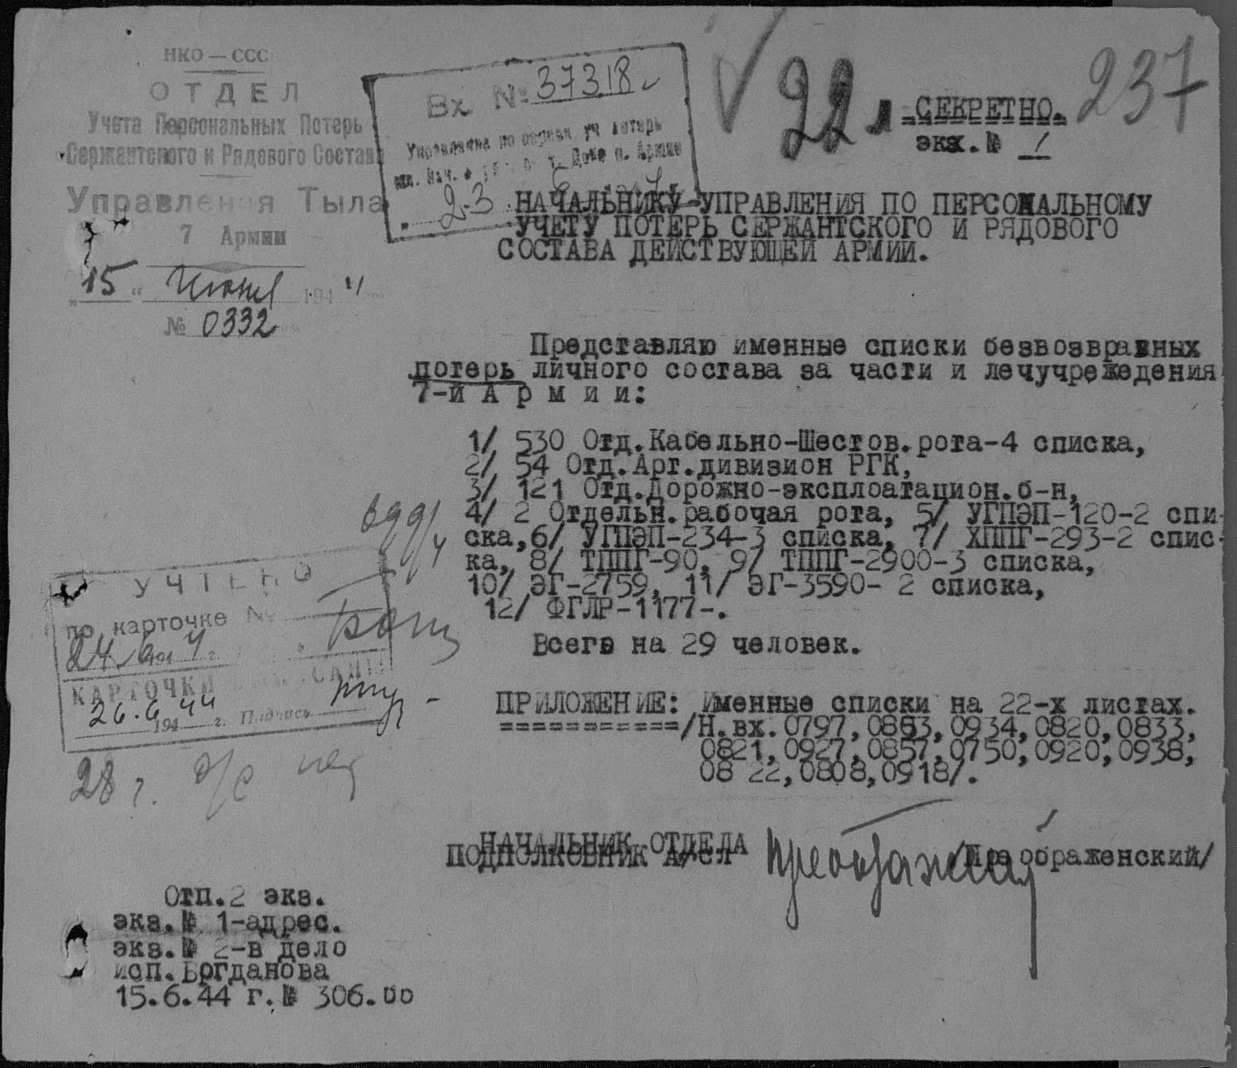 НКО — ССС
ОТДЕЛ
Учета Персональных Потерь
Сержантского и Рядового Состава
Управления Тыла
7 Армии
"15" Июня 194
№ 0332
Вх № 37318
Управления по перс уч потерь
23
22 л
237
СЕКРЕТНО.
экз. № 1
НАЧАЛЬНИКУ УПРАВЛЕНИЯ ПО ПЕРСОНАЛЬНОМУ
УЧЕТУ ПОТЕРЬ СЕРЖАНТСКОГО И РЯДОВОГО
СОСТАВА ДЕЙСТВУЮЩЕЙ АРМИИ.
Представляю именные списки безвозвратных
потерь личного состава за части и лечучреждения
7-й А р м и и:
1/ 530 Отд.Кабельно-Шестов.рота-4 списка,
2/ 54 Отд.Арт.дивизион РГК,
3/ 121 Отд.Дорожно-эксплоатацион.б-н,
4/ 2 Отдельн.рабочая рота, 5/ УГПЭП-120-2 спи-
ска,6/ УГПЭП-234-3 списка, 7/ ХППГ-293-2 спис-
ка, 8/ ТППГ-90, 9/ ТППГ-2900-3 списка,
10/ ЭГ-2759, 11/ ЭГ-3590- 2 списка,
12/ ФГЛР-1177-.
Всего на 29 человек.
УЧТЕНО
по карточке №
24 6 194 4 г.
КАРТОЧКИ
26.6 194 44 г. Подпись
28 г.
ПРИЛОЖЕНИЕ: Именные списки на 22-х листах.
===========/Н.вх.0797,0863,0934,0820,0833,
0821,0927,0857,0750,0920,0938,
08 22,0808,0918/.
НАЧАЛЬНИК ОТДЕЛА
ПОДПОЛКОВНИК А/СЛ
Преображенский
/Преображенский/
Отп.2 экз.
экз.№ 1-адрес.
экз.№ 2-в дело
исп.Богданова
15.6.44 г.№ 306.